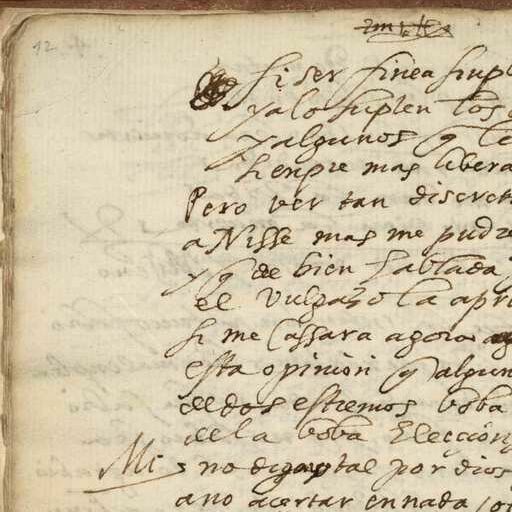 12
si ser finea simpl
ya lo suplen los
y algunos q le
sienpre mas libera
Pero ver tan discret
a Nisse mas me pudre
y q de bien hablada
el vulgazo la apr
si me cassara agora
esta opinion q algun
de dos estremos boba
de la boba Eleccion
Mi no diga tal por dios
a no acertar en nada